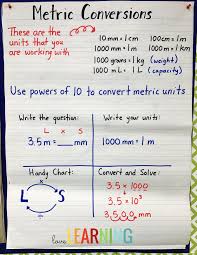 Metric Conversions
These are the
units that you
are working with
10mm = 1cm 100cm = 1m
1000mm = 1m 1000m = 1km
1000 grams = 1kg (weight)
1000 mL = 1L (capacity)
Use powers of 10 to convert metric units
Write the question:
L x S
3.5m = ___ mm
Write your units:
1000 mm = 1m
Handy Chart:
x
L S
÷
Convert and Solve:
3.5 x 1000
3.5 x 10³
3,500 mm
love LEARNING